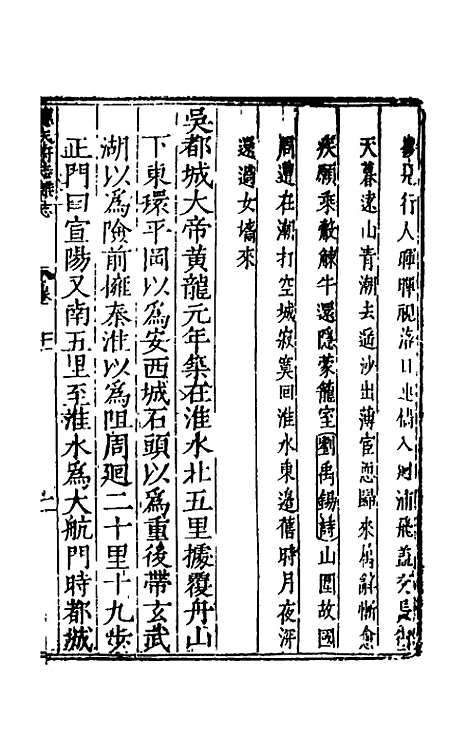 行人聊
天暮遠山青潮去遥沙出薄宦忽歸來屬辭慚愈
疾願乘觳觫牛還隱蒙籠室劉禹錫詩山圍故國
周遭在潮打空城寂寞回淮水東邊舊時月夜深
還過女墻來
吳都城大帝黃龍元年築在淮水北五里據覆舟山
下東環平岡以為安西城石頭以為重後帶玄武
湖以為險前擁秦淮以為阻周廻二十里十九步
正門曰宣陽又南五里至淮水為大航門時都城
應天府志雜志
卷